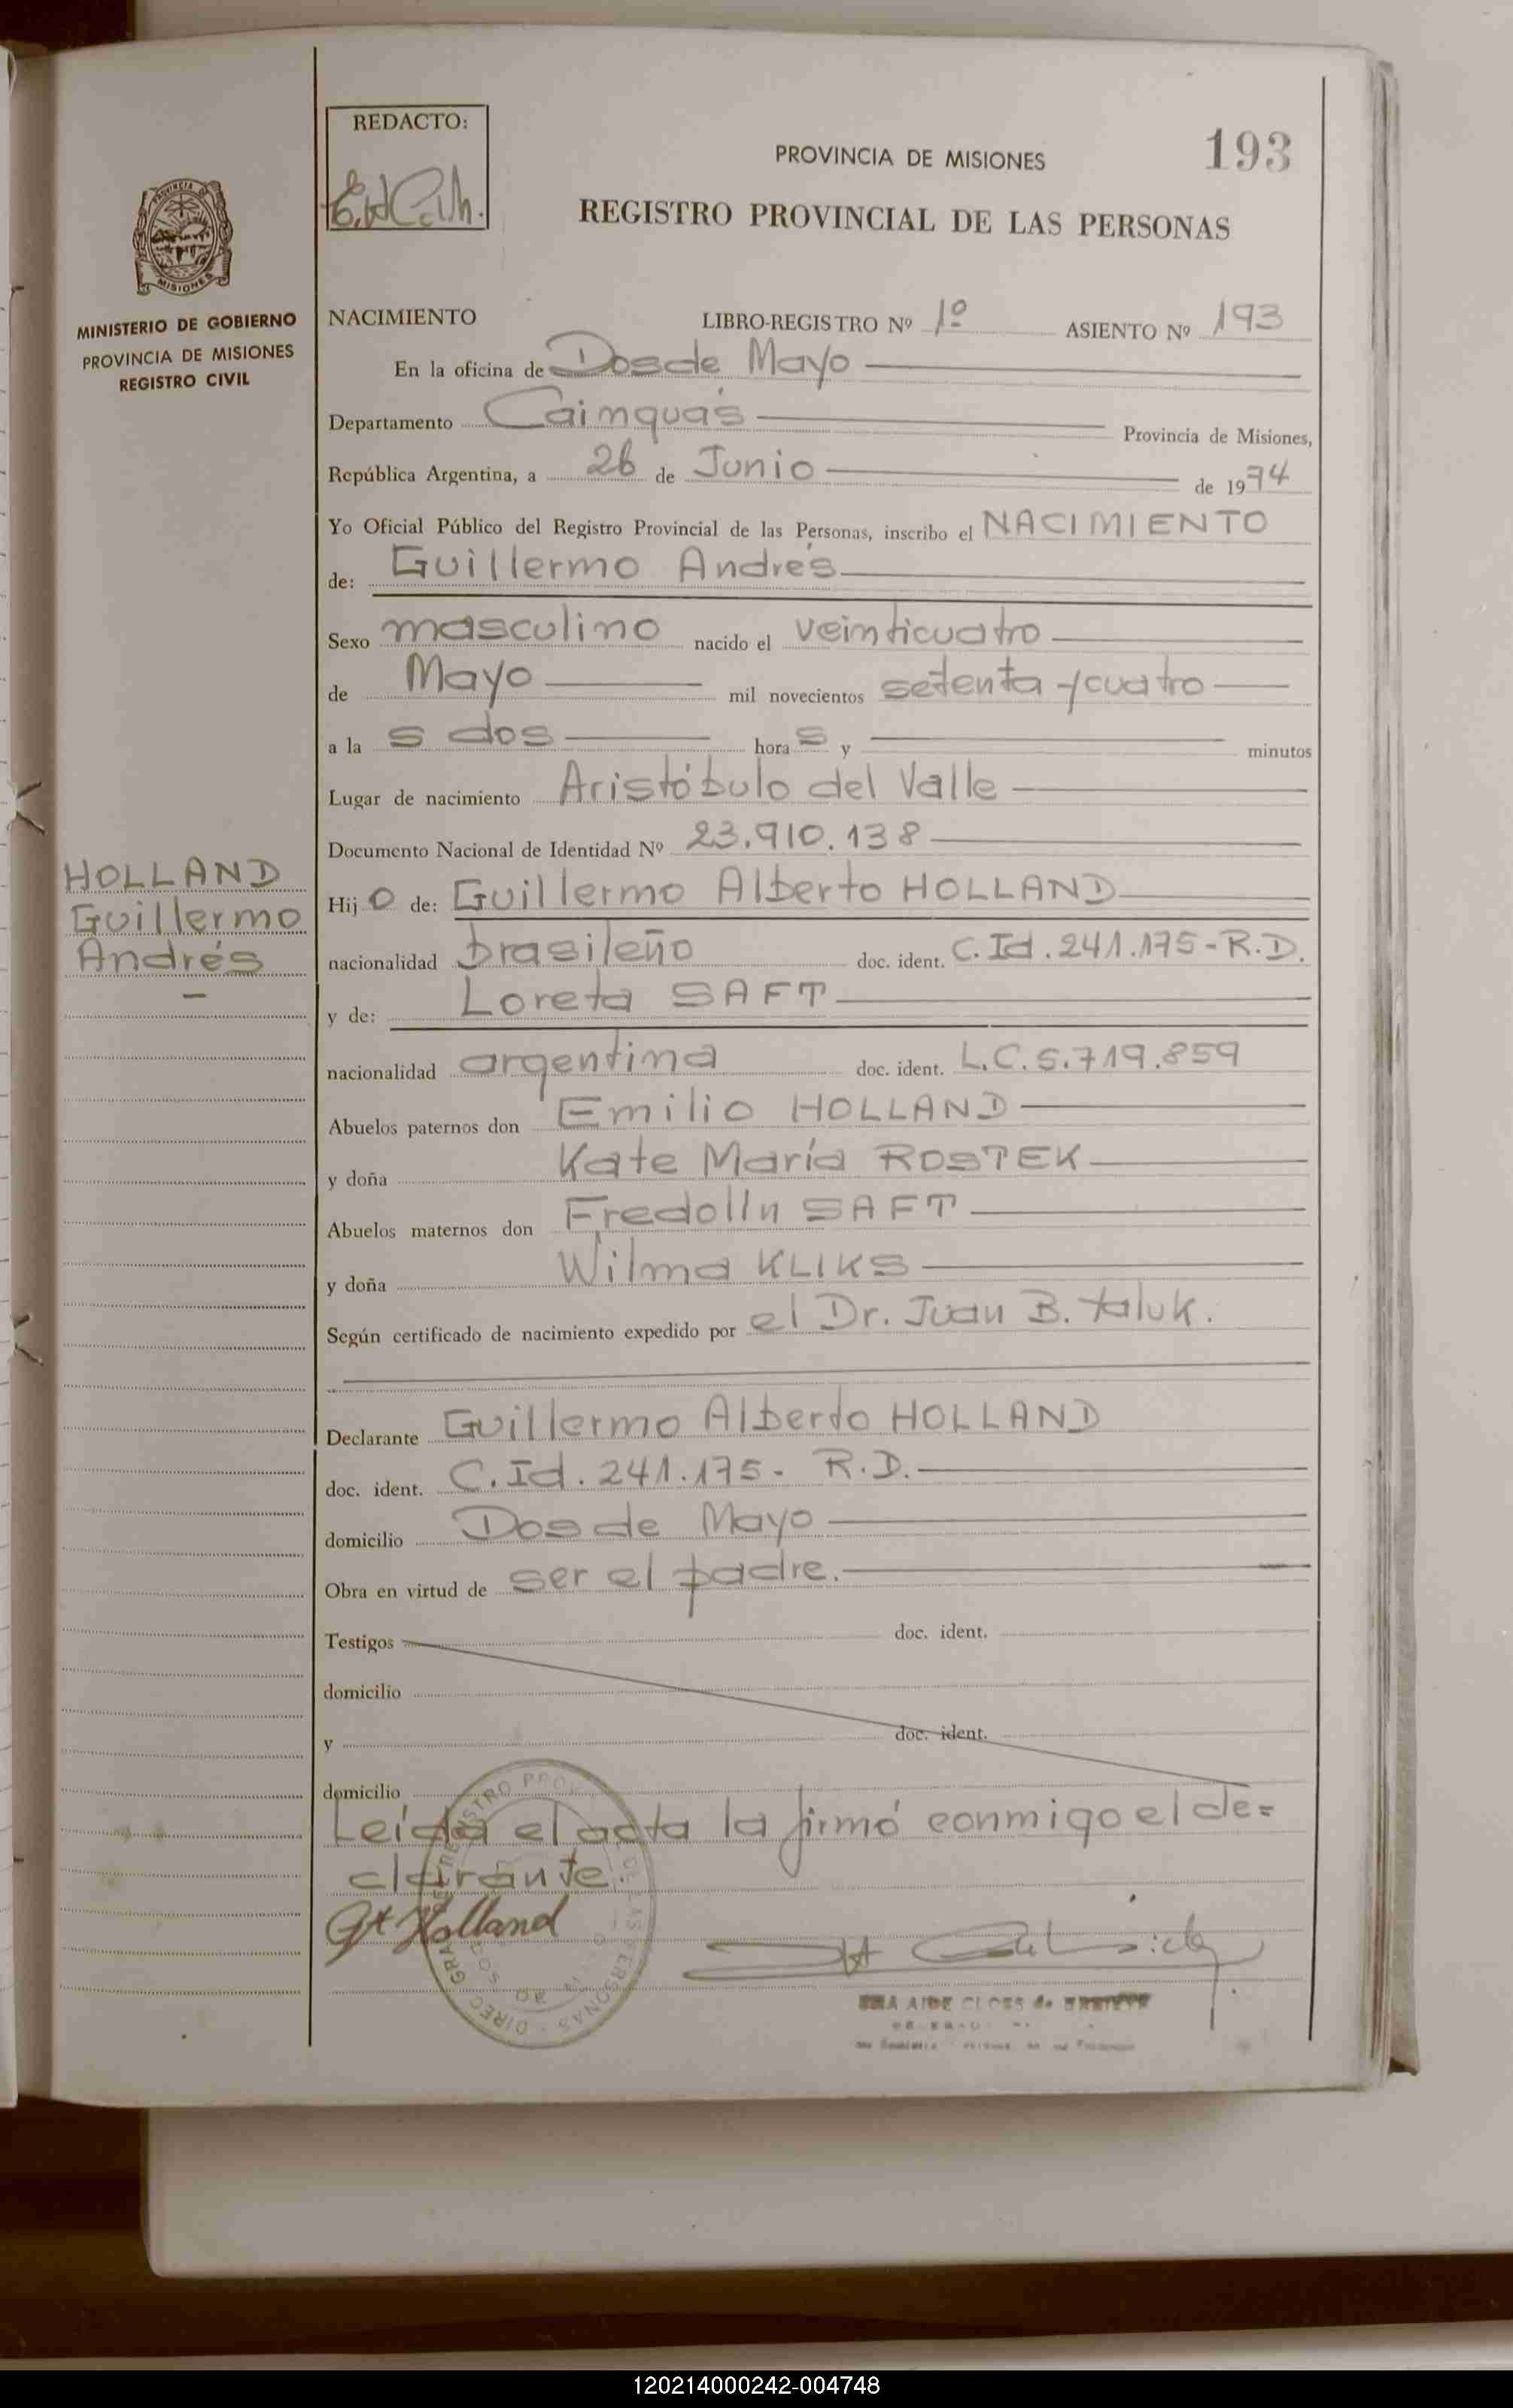 REDACTO:
PROVINCIA DE MISIONES
193
REGISTRO PROVINCIAL DE LAS PERSONAS
PROVINCIA DE
MISIONES
MINISTERIO DE GOBIERNO
PROVINCIA DE MISIONES
REGISTRO CIVIL
NACIMIENTO LIBRO-REGISTRO Nº 1º ASIENTO Nº 193
En la oficina de Dos de Mayo
Departamento Cainguás Provincia de Misiones,
República Argentina, a 26 de Junio de 1974
Yo Oficial Público del Registro Provincial de las Personas, inscribo el NACIMIENTO
de: Guillermo Andrés
Sexo masculino nacido el veinticuatro
de Mayo mil novecientos setenta y cuatro
a la s dos hora s y minutos
Lugar de nacimiento Aristóbulo del Valle
Documento Nacional de Identidad Nº 23.910.138
HOLLAND
Guillermo
Andrés
Hij o de: Guillermo Alberto HOLLAND
nacionalidad brasileño doc. ident. C. Id. 241.175-R.D.
y de: Loreta SAFT
nacionalidad argentina doc. ident. L.C. 5.719.859
Abuelos paternos don Emilio HOLLAND
y doña Kate María ROSTEK
Abuelos maternos don Fredolln SAFT
y doña Wilma KLIKS
Según certificado de nacimiento expedido por el Dr. Juan B. Yaluk.
Declarante Guillermo Alberto HOLLAND
doc. ident. C. Id. 241.175- R.D.
domicilio Dos de Mayo
Obra en virtud de ser el padre.
Testigos doc. ident.
domicilio
y doc. ident.
domicilio
Leída el acta la firmó conmigo el de=
clarante.
Gt Holland
120214000242-004748